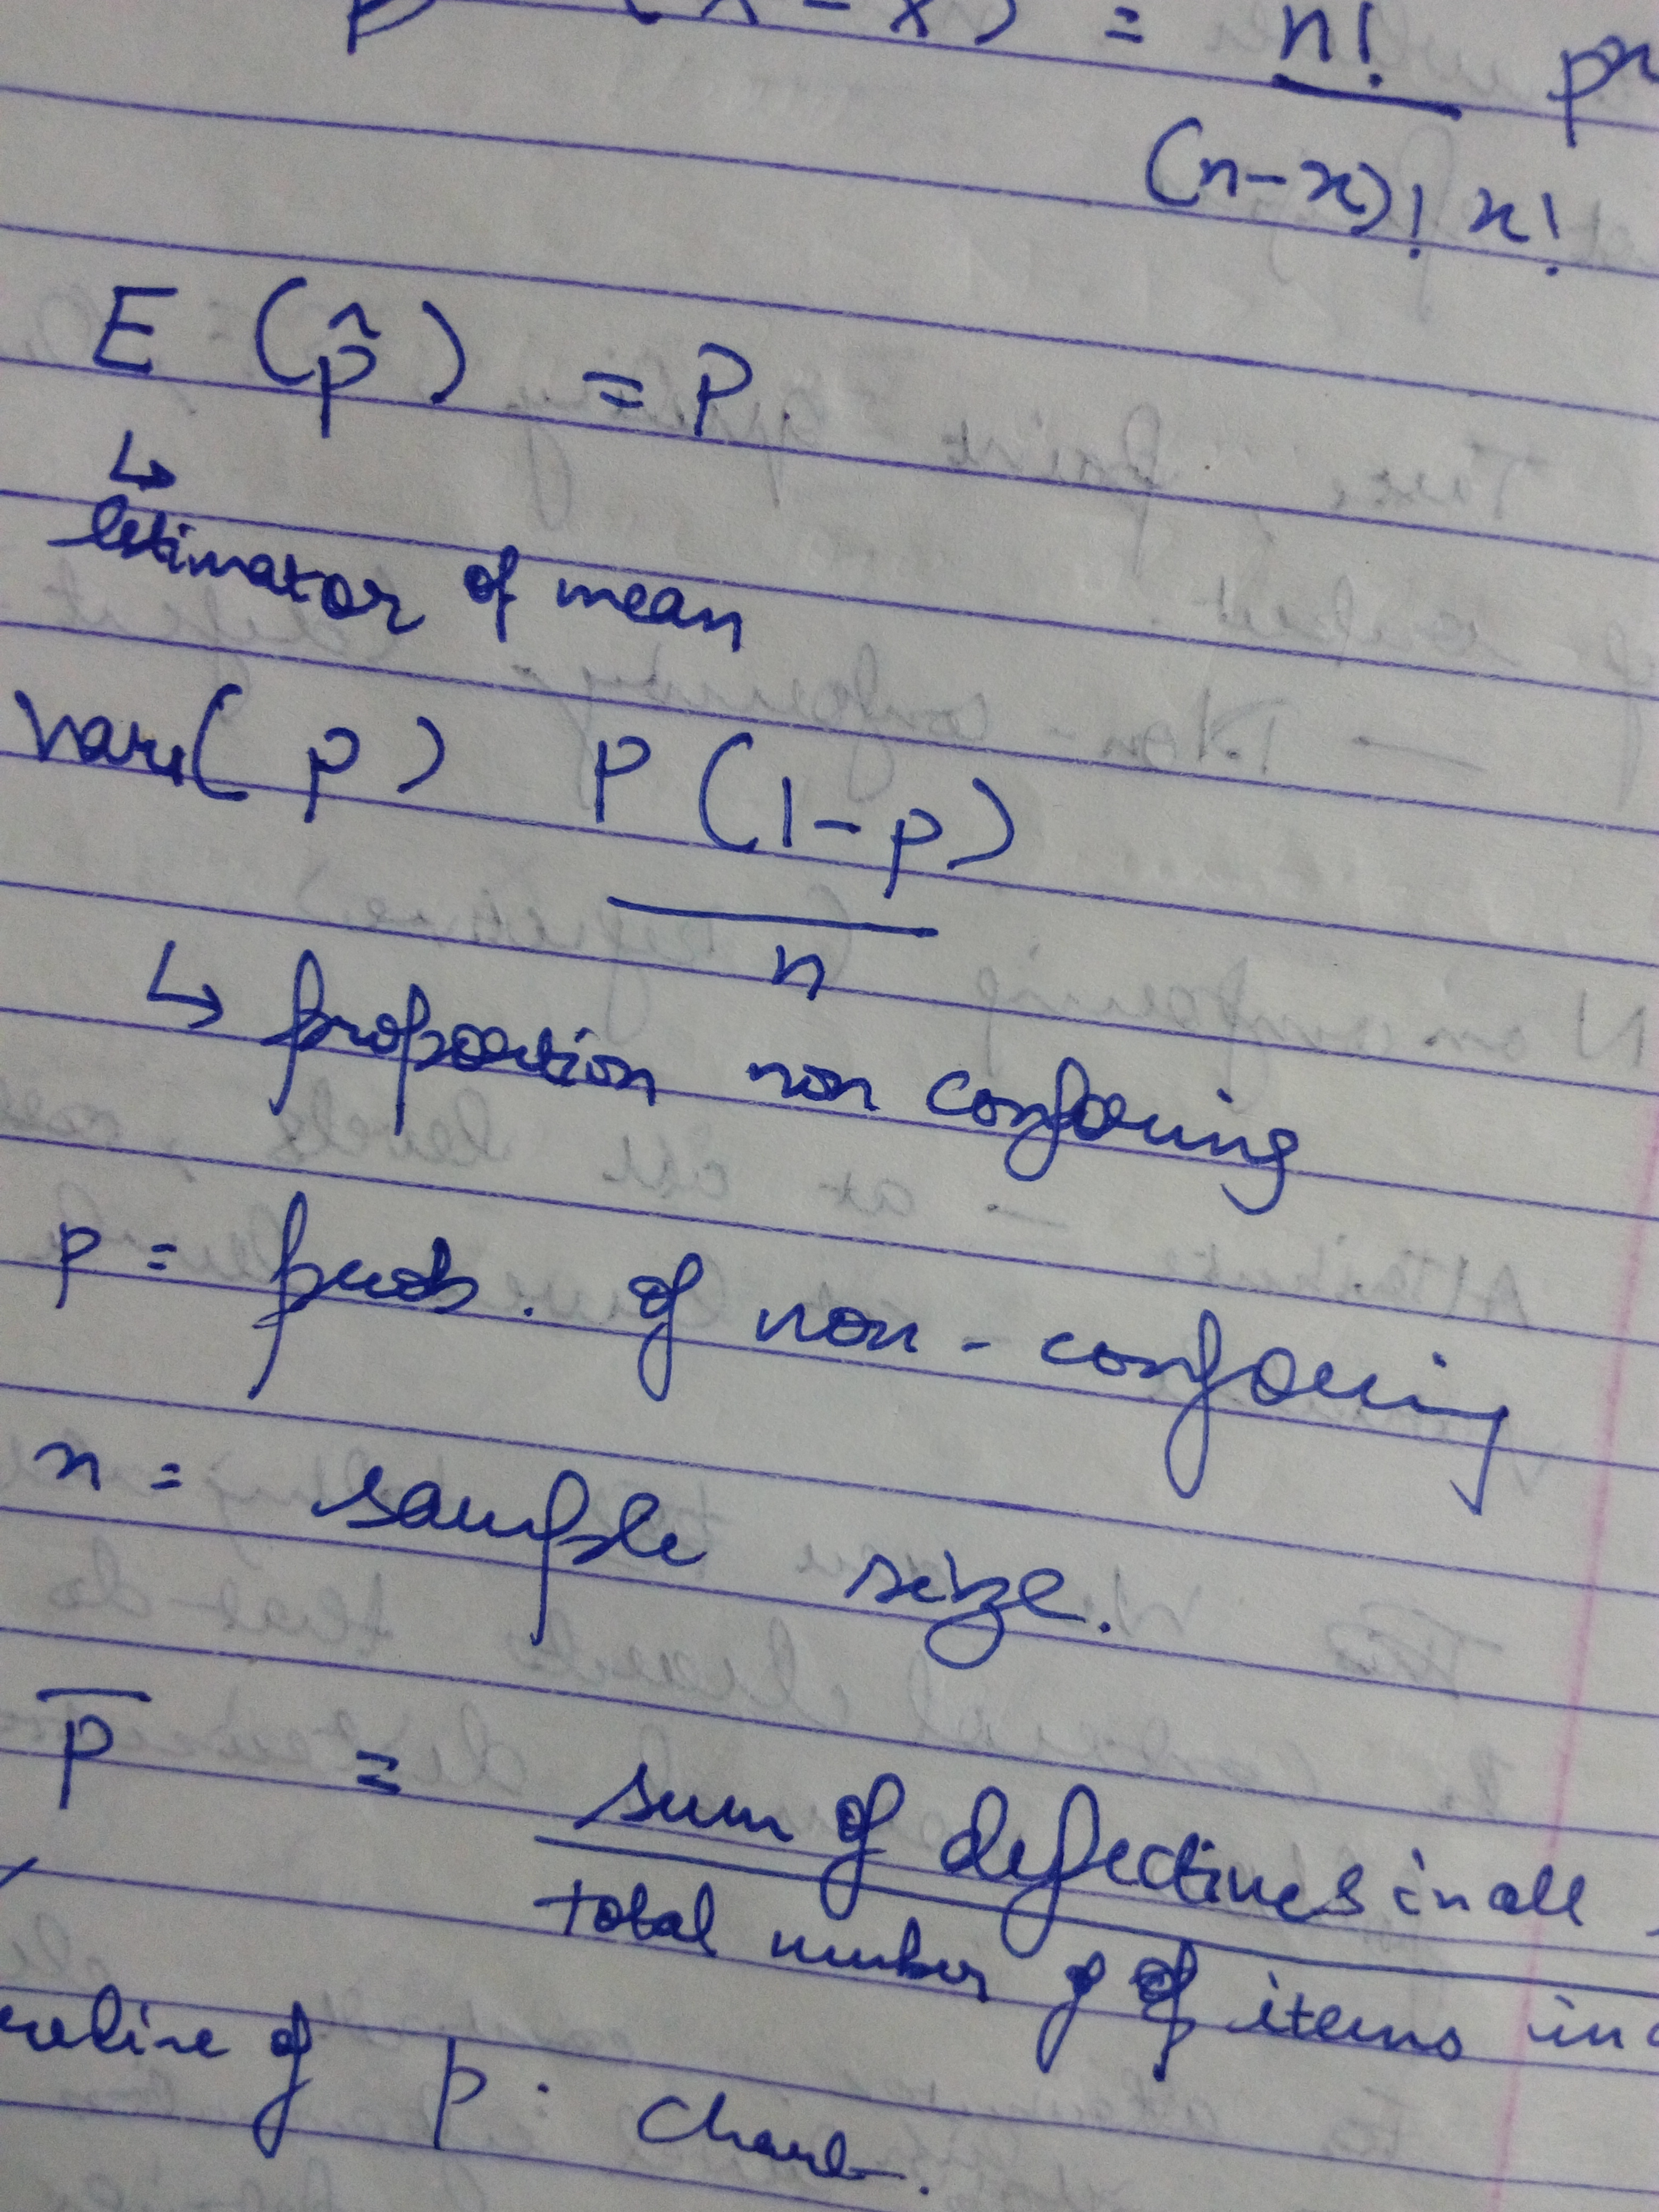 P (X = x) = n! p^x
(n-x)! x!
E (p̂) = P
↳
Estimator of mean
Var(p) P(1-p)
n
↳ proportion non conforing
p = prob. of non-conforing
n = sample size.
p̄ = sum of defectives in all
total number of of items in
reline of p. chart.